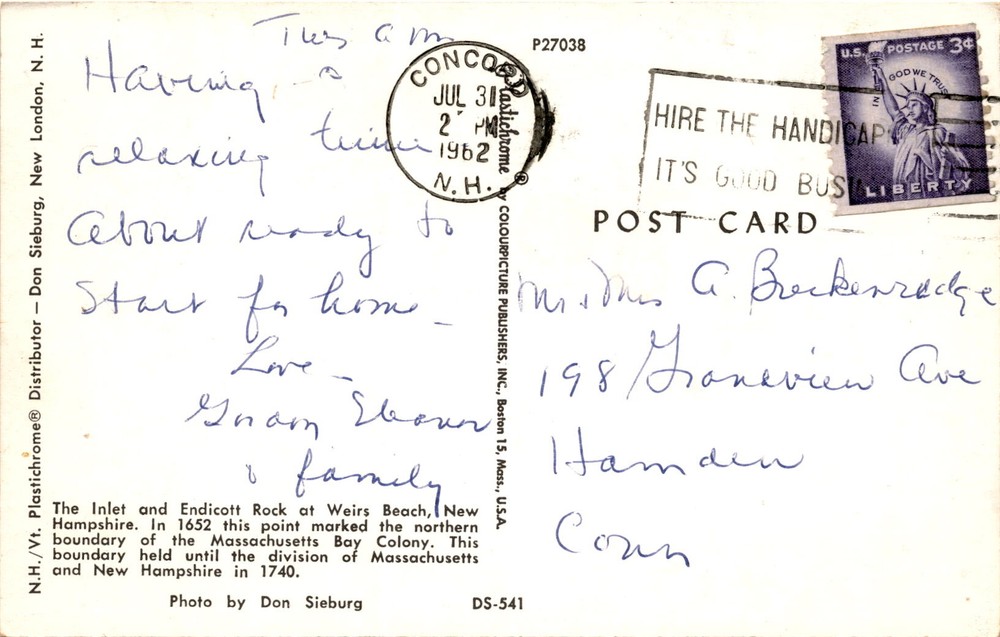 N.H./Vt. Plastichrome® Distributor — Don Sieburg, New London, N. H.
Tues a m
Having a
relaxing time
About ready to
Start for home –
Love –
Eleanor
& family
The Inlet and Endicott Rock at Weirs Beach, New
Hampshire. In 1652 this point marked the northern
boundary of the Massachusetts Bay Colony. This
boundary held until the division of Massachusetts
and New Hampshire in 1740.
Photo by Don Sieburg
DS-541
Plastichrome® by COLOURPICTURE PUBLISHERS, INC., Boston 15, Mass., U.S.A.
CONCORD
JUL 31
2 PM
1962
N.H.
P27038
HIRE THE HANDICAP
IT'S GOOD BUSI
U.S. POSTAGE 3¢
IN GOD WE TRUST
LIBERTY
POST CARD
Mr & Mrs A. Breckenridge
198 Grandview Ave
Hamden
Conn